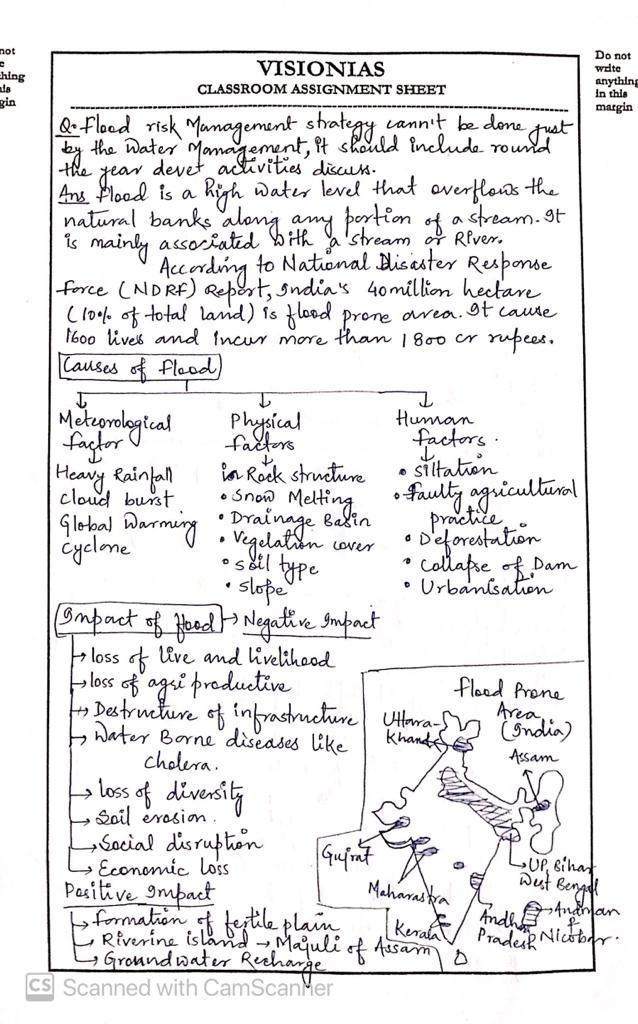 not
e
thing
his
gin
Do not
write
anything
in this
margin
VISIONIAS
CLASSROOM ASSIGNMENT SHEET
Q. Flood risk Management strategy cann't be done just
by the Water Management, it should include round
the year devet activities discuss.
Ans Flood is a high water level that overflows the
natural banks along any portion of a stream. It
is mainly associated with a stream or River.
According to National Disaster Response
Force (NDRF) Report, India's 40 million hectare
(10% of total land) is flood prone area. It cause
1600 lives and incur more than 1800 cr rupees.
Causes of flood
Meteorological
factor
Heavy Rainfall
Cloud burst
Global Warming
Cyclone
Physical
factors
Rock structure
• Snow Melting
• Drainage Basin
• Vegetation cover
• Soil type
• Slope
Human
factors.
• Siltation
• Faulty agricultural
practice
• Deforestation
• Collapse of Dam
• Urbanisation
Impact of flood → Negative Impact
→ loss of live and livelihood
→ loss of agri productive
→ Destructure of infrastructure
→ Water Borne diseases like
cholera.
→ loss of diversity
→ Soil erosion.
→ Social disruption
→ Economic Loss
Positive Impact
→ formation of fertile plain
→ Riverine island → Majuli of Assam
→ Groundwater Recharge
Flood Prone
Area
(India)
Uttara-
Khand
Assam
Gujrat
Maharastra
Kerala
UP, Bihar
West Bengal
Andhra
Pradesh
Andman
&
Nicobar.
CS Scanned with CamScanner